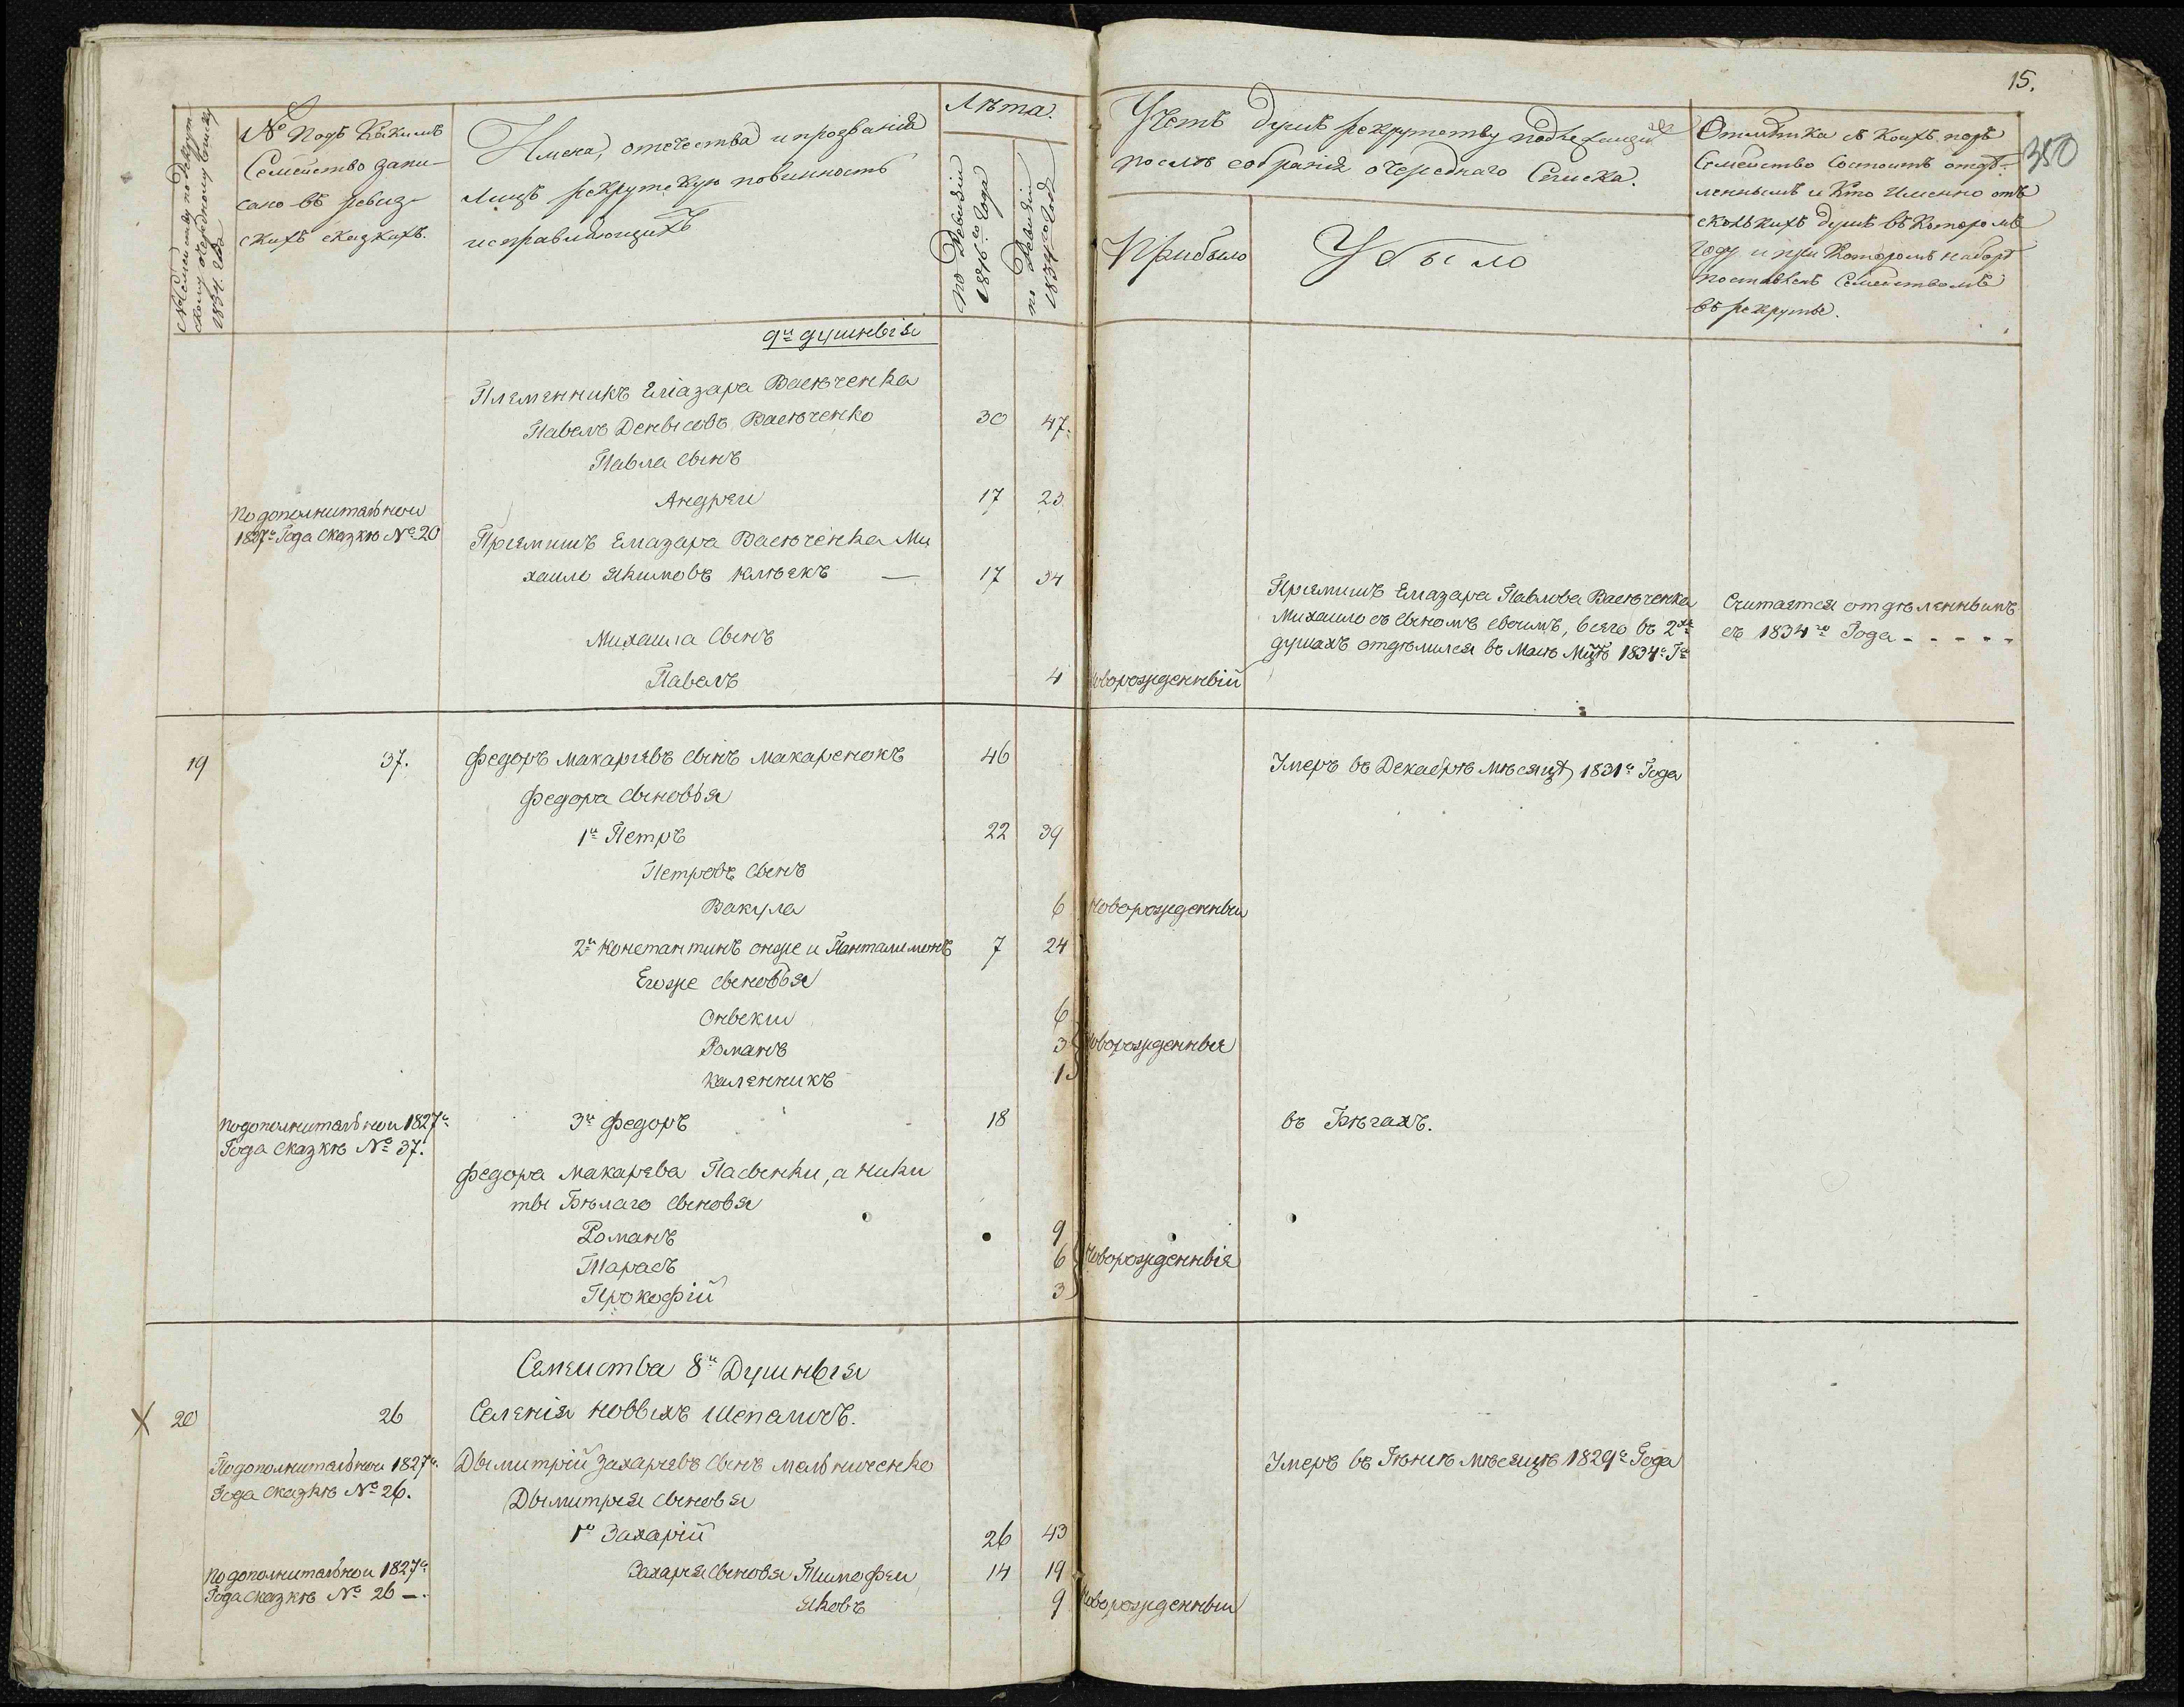 15.
350
№ Семейству по рекрут-
скому очередному списку
1834. года
№ Подъ Какимъ
Семейство запи-
сано въ ревиз-
скихъ сказкахъ.
Имена, отечества и прозванія
лицъ рекрутскую повинность
исправляющихъ
Лѣта.
по Ревизіи
1816го Года
по Ревизіи
1834го Года
Учетъ душъ рекрутству подлежащихъ
послѣ собранія очереднаго Списка.
Прибыло
Убыло
Отмѣтка съ коихъ поръ
Семейство Состоитъ отдѣ-
леннымъ и Кто Именно отъ
сколькихъ душъ въ Которомъ
Году и при Которомъ наборѣ
поставленъ Семействомъ
въ рекруты.
9и душныя
Племенникъ Елиазара Васюченка
Павелъ Денысовъ Васюченко 30 47.
Павла Сынъ
Андреи 17 23
По дополнитальнои
1827го Года Сказкѣ № 20
Приемишъ Елиазара Васюченка Ми
хаило Якимовъ Клюекъ — 17 34
Приемишъ Елиазара Павлова Васюченка
Михаило съ Сыномъ своимъ, всего въ 2хъ
душахъ отдѣлился въ Маѣ Мцѣ 1834го Гда
Считается отдѣленнымъ
съ 1834го Года - - - - -
Михаила Сынъ
Павелъ 4 Новорожденный
19 37. Федоръ Макариевъ Сынъ Макаренокъ 46 Умеръ въ Декабрѣ мѣсяцѣ 1831го Года
Федора Сыновья
1и Петръ 22 39
Петровъ Сынъ
Вакула 6 Новорожденныи
2и Константинъ онже и Панталимонъ 7 24
Егоже Сыновья
Онвекии 6
Романъ 3 Новорожденные
Каленникъ 1
По дополнитальнои 1827го
Года Сказкѣ № 37.
3и Федоръ 18 въ Бѣгахъ.
Федора Макарева Пасынки, а Ники
ты Бѣлаго Сыновья
Романъ 9
Тарасъ 6 Новорожденныя
Прокофій 3
Семеиства 8и Душныя
20 26 Селенія Новыхъ Шепаличъ.
По дополнитальнои 1827го
Года Сказкѣ № 26.
Дымитрій Захарчевъ Сынъ Мельниченко Умеръ въ Іюнѣ мѣсяцѣ 1829го Года
Дымитрія Сыновья
1и Захарій 26 43
По дополнитальнои 1827го
Года Сказкѣ № 26 —.
Захария Сыновья Тимофеи 14 19
Яковъ 9 Новорожденныи